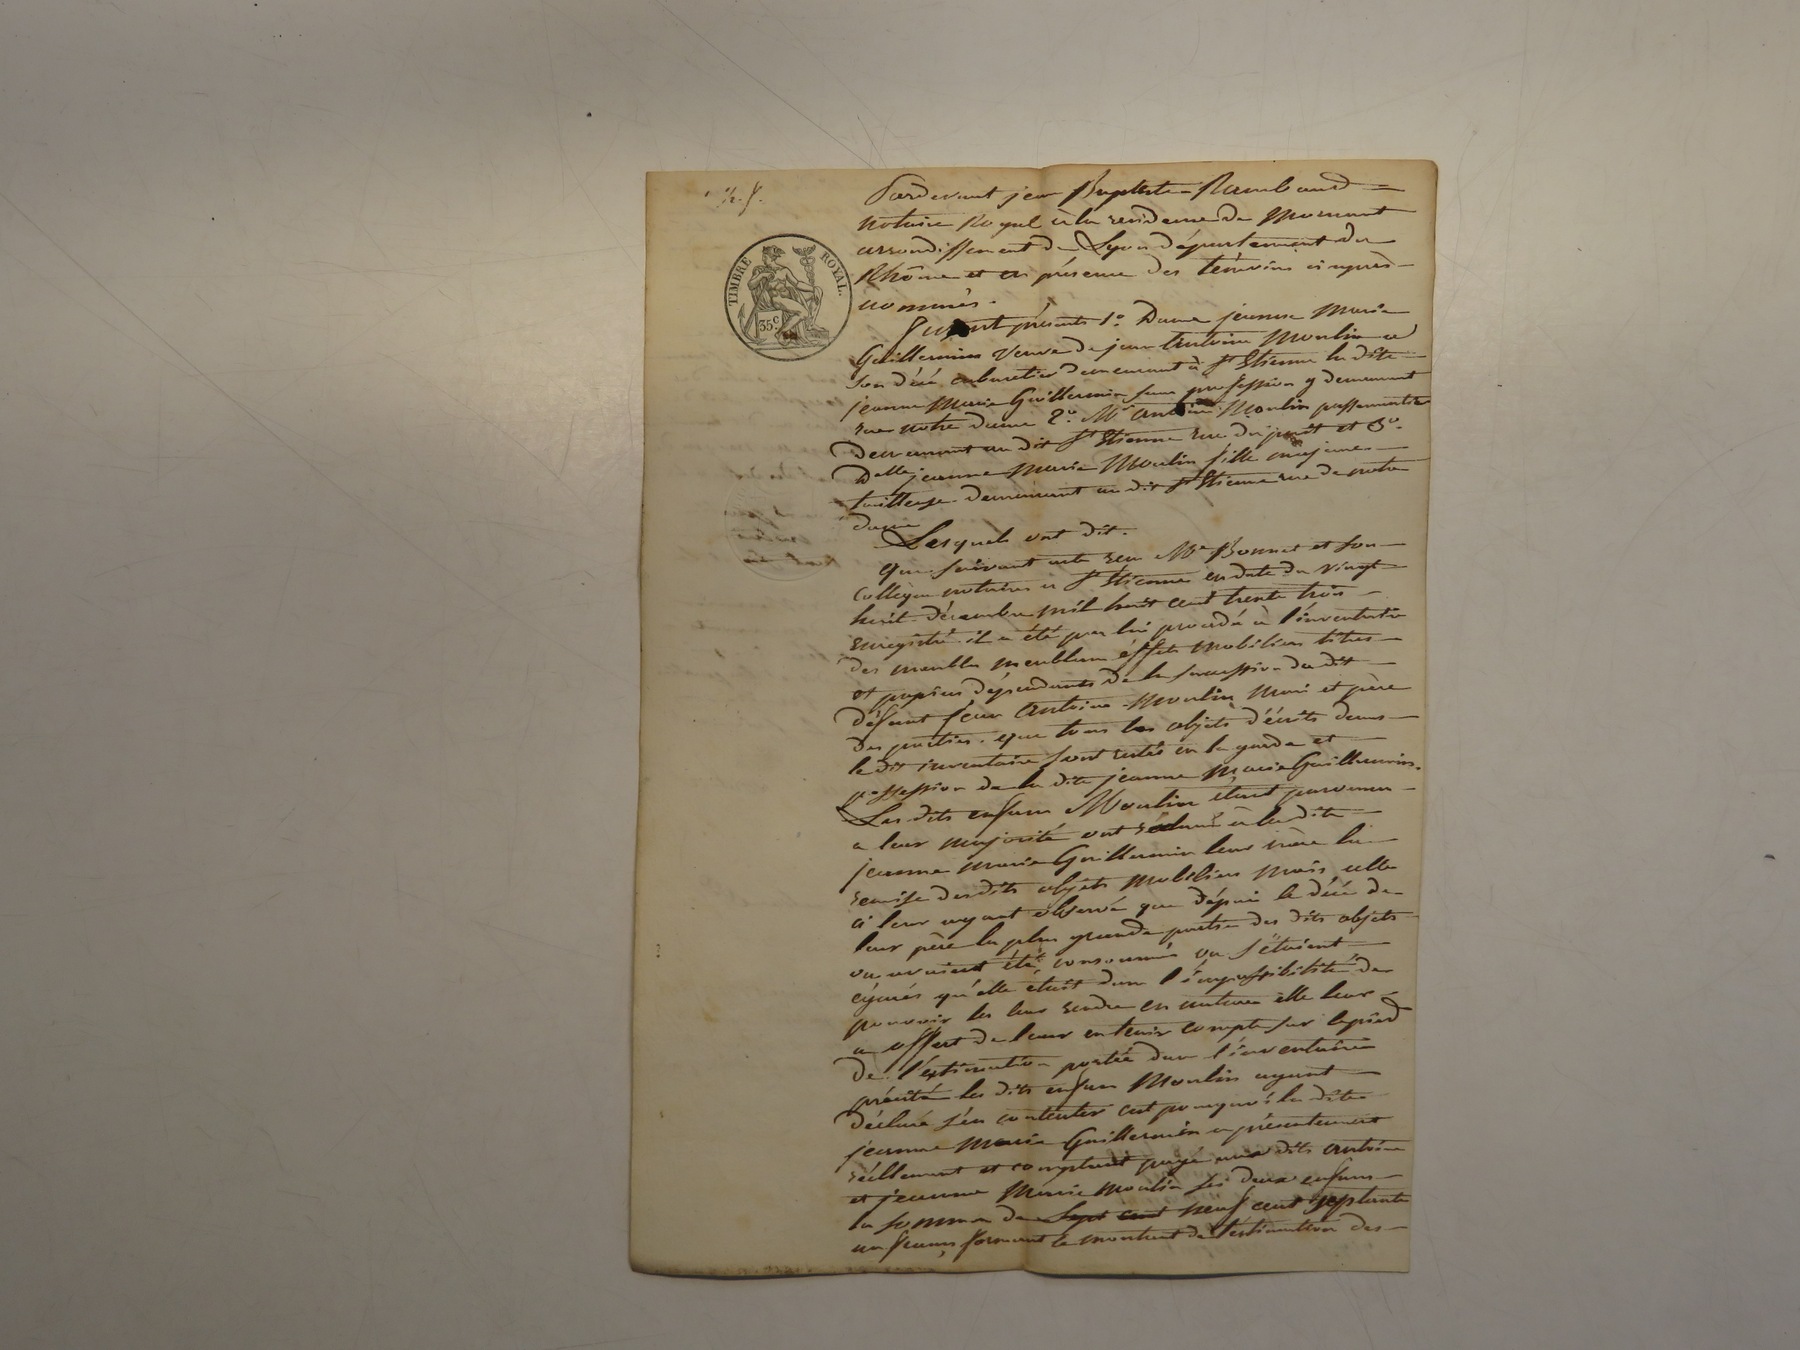 TIMBRE ROYAL.
35c.
Pardevant jean Baptiste Rambaud
notaire Royal à la residence de Mornant
arrondissement de Lyon département du
Rhône et en présence des témoins ci après
nommés.
Furent présents 1o. Dame jeanne Marie
Guillermin Veuve de jean Antoine Moulin
son décé cabaretier demeurant à St Etienne la dite
jeanne Marie Guillermin sans profession y demeurant
rue notre dame 2o. Mr Antoine Moulin passementier
demeurant au dit St Etienne rue du et 3o.
Delle jeanne Marie Moulin fille majeure
tailleuse demeurant au dit St Etienne rue de notre
dame
Lesquels ont dit.
Que suivant acte reçu Me Bonnet et son
collègue notaires à St Etienne en date du vingt
huit décembre mil huit cent trente trois
enregistré il a été par lui procédé à l'inventaire
des meubles meublans effets mobiliers titres
et papiers dépendants de la succession du dit
défunt jean Antoine Moulin mari et père
des parties. que tous les objets décrits dans
le dit inventaire sont restés en la garde et
possession de la dite jeanne Marie Guillermin.
Les dits enfans Moulin étant parvenus
a leur majorité ont réclamé à la dite
jeanne Marie Guillermin leur mère la
remise desdits objets mobiliers mais celle
ci leur ayant observé que dépuis le décé de
leur père la plus grande partie des dits objets
ou avaient été consommés ou s'étaient
égarés qu'elle était dans l'impossibilité de
pouvoir les leur rendre en nature elle leur
a offert de leur en tenir compte sur le pied
de l'éstimation portée dans l'inventaire
précité les dits enfans Moulin ayant
déclaré s'en contenter cest pourquoi la dite
jeanne Marie Guillermin a présentement
réellement et comptant payé aux dits Antoine
et jeanne Marie Moulin ses deux enfans
la somme de Sept cent neuf cent septante
un francs formant le montant de l'estimation des